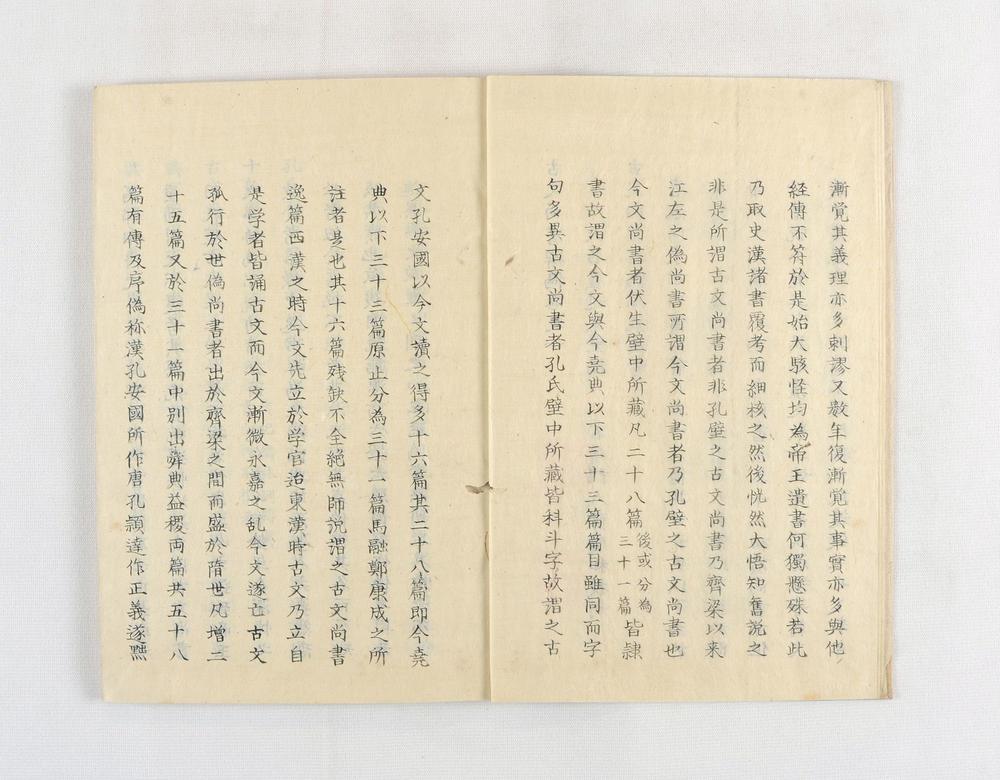 漸覚其義理亦多刺謬又数年復漸覚其事實亦多與他
経傳不符於是始大駭怪均為帝王遺書何獨懸殊若此
乃取史漢諸書覆考而細核之然後恍然大悟知舊説之
非是所謂古文尚書者非孔壁之古文尚書乃齊梁以来
江左之偽尚書所謂今文尚書者乃孔壁之古文尚書也
今文尚書者伏生壁中所藏凡二十八篇後或分為三十一篇皆隷
書故謂之今文與今尭典以下三十三篇篇目雖同而字
句多異古文尚書者孔氏壁中所藏皆科斗字故謂之古
文孔安國以今文讀之得多十六篇其二十八篇即今尭
典以下三十三篇原止分為三十一篇馬融鄭康成之所
註者是也其十六篇残缺不全絶無師説謂之古文尚書
逸篇西漢之時今文先立於学官迨東漢時古文乃立自
是学者皆誦古文而今文漸微永嘉之乱今文遂亡古文
孤行於世偽尚書者出於齊梁之間而盛於隋世凡増二
十五篇又於三十一篇中別出舜典益稷両篇共五十八
篇有傳及序偽称漢孔安國所作唐孔頴達作正義遂黜